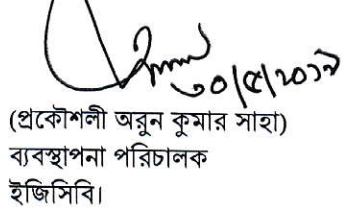 ৩০/৫/২০১৯
(প্রকৌশলী অরুন কুমার সাহা)
ব্যবস্থাপনা পরিচালক
ইজিসিবি।